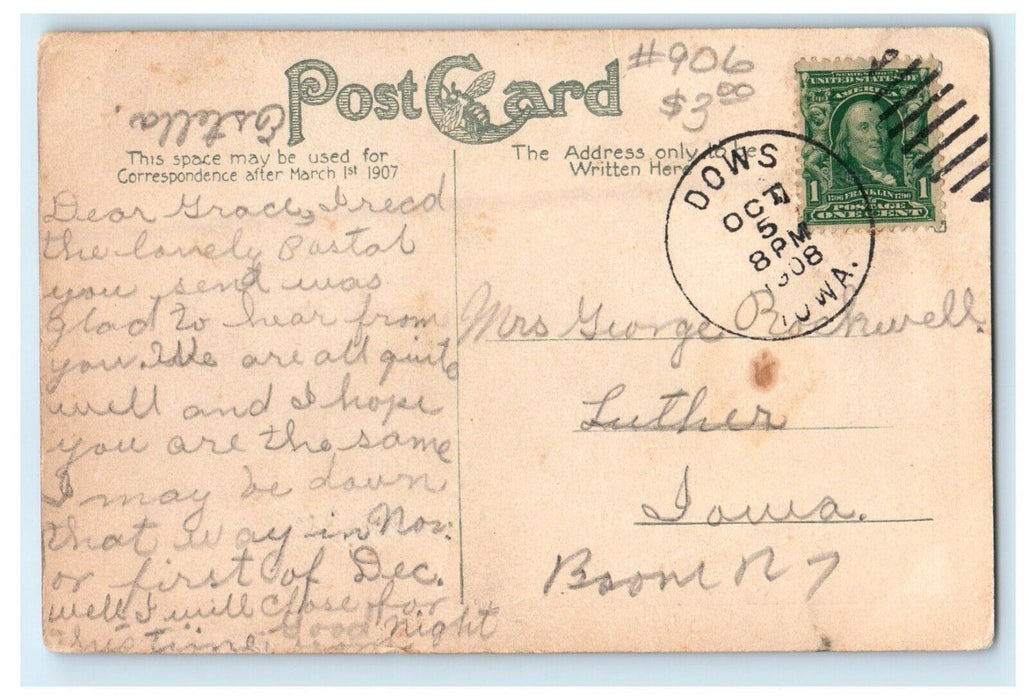 Post Card
#906
$3.00
SERIES 1902
UNITED STATES OF
AMERICA
1706 FRANKLIN 1790
1 1
POSTAGE
ONE CENT
Estella.
This space may be used for
Correspondence after March 1st 1907
The Address only to be
Written Here
DOWS
OCT
5
8 PM
1908
IOWA.
Dear Grace, I recd
the lovely Postal
you send was
glad to hear from
you. We are all quite
well and I hope
you are the same
I may be down
that way in Nov.
or first of Dec.
well I will close for
this time, Good Night
Mrs George Rockwell.
Luther
Iowa.
Boone R 7